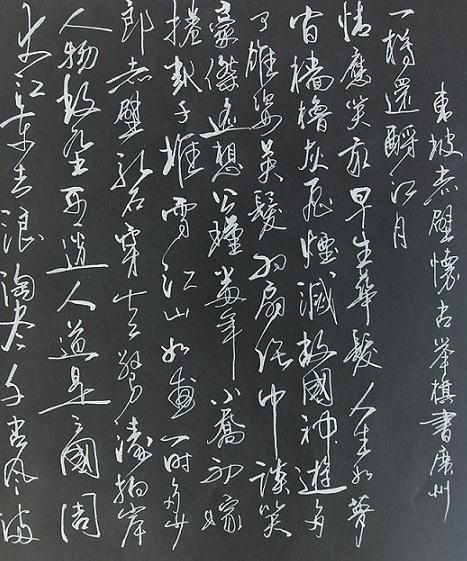 大江东去浪淘尽千古风流
人物故垒西边人道是三國周
郎赤壁乱石穿空惊涛拍岸
捲起千堆雪江山如画一时多少
豪傑遥想公瑾当年小喬初嫁
了雄姿英髮羽扇纶巾談笑
间檣櫓灰飞煙滅故國神遊多
情應笑我早生華髮人生如夢
一樽還酹江月
東坡赤壁懷古書廣州